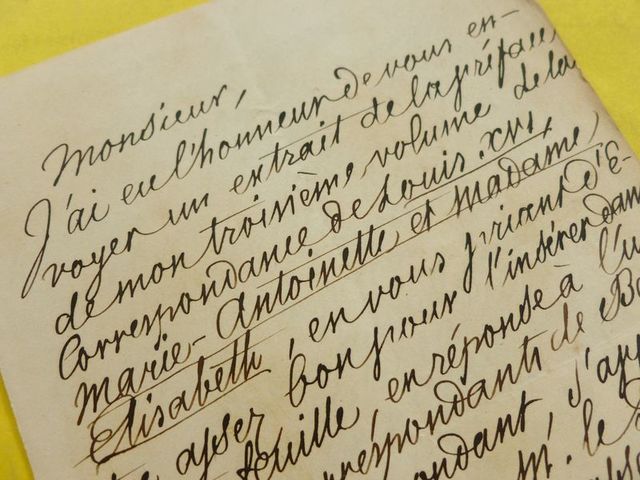 Monsieur,
J'ai eu l'honneur de vous en-
voyer un extrait de la préface
de mon troisième volume de la
Correspondance de Louis XVI,
Marie-Antoinette et Madame
Elisabeth, en vous priant d'E-
asser bon pour l'insérer dan
feuille, en réponse à l'u
respondants de Bo
ondant, j'app
M. le